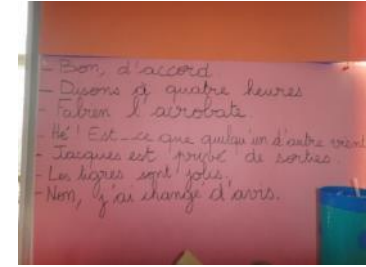 - Bon, d'accord
- Disons à quatre heures
- Fabien l'acrobate.
- Hé ! Est-ce que quelqu'un d'autre vient
- Jacques est privé de sorties.
- Les tigres sont jolis.
- Non, j'ai changé d'avis.